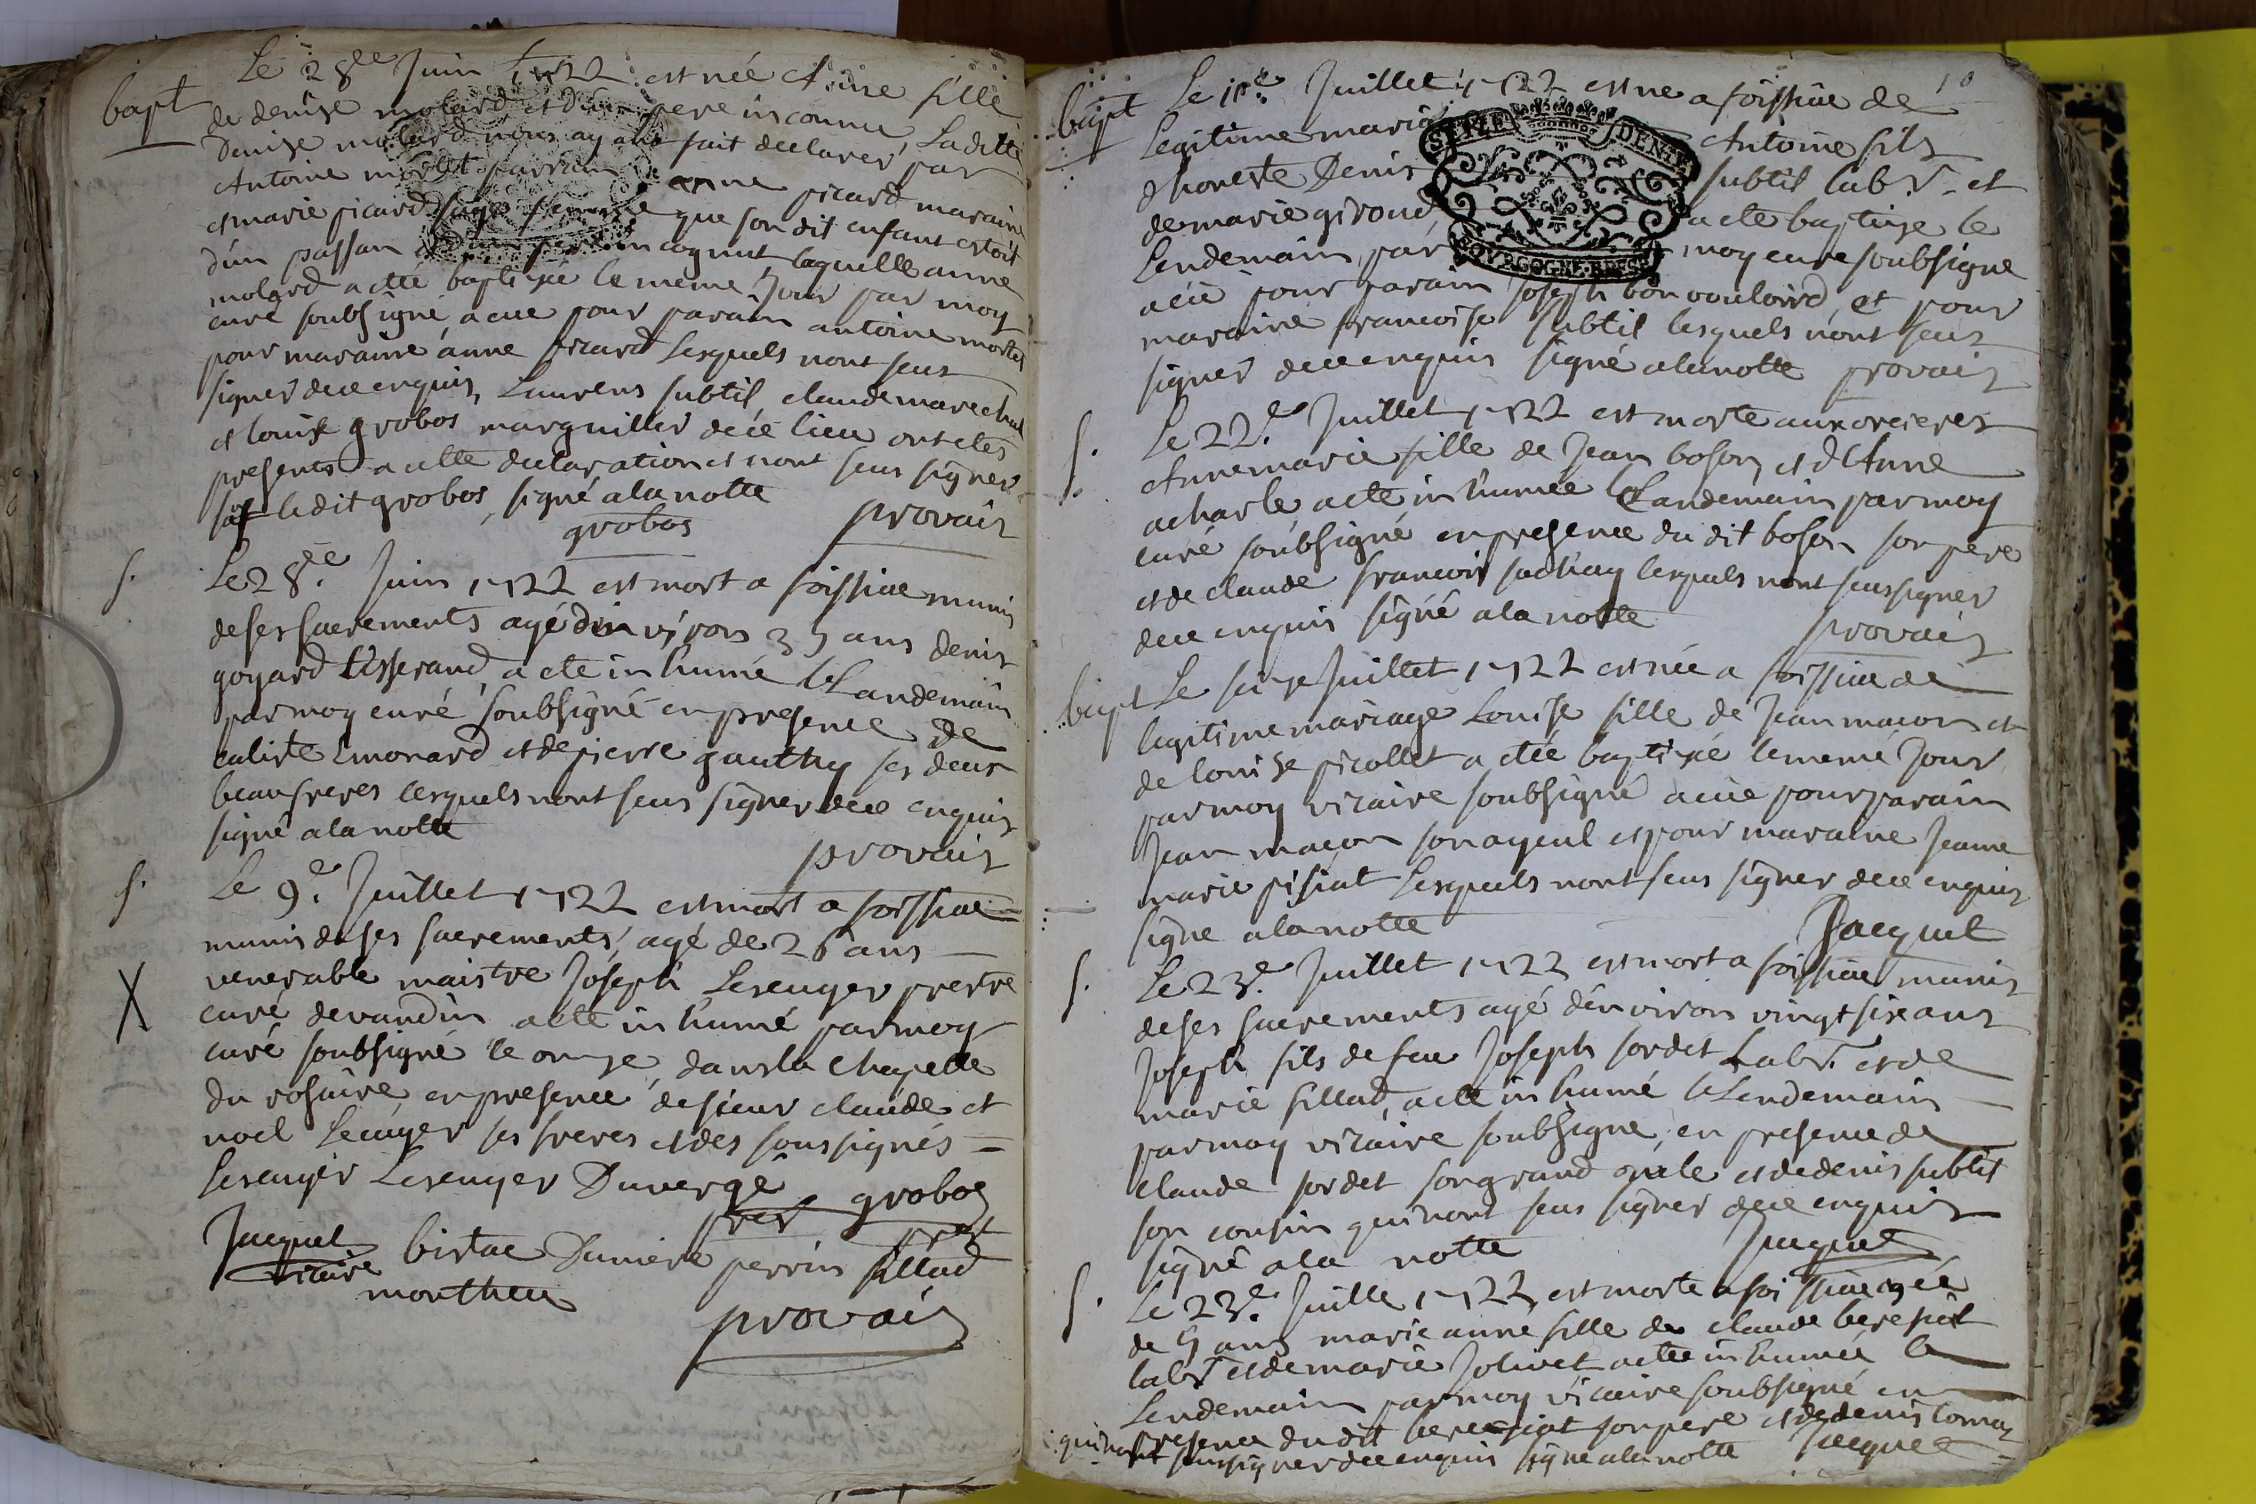 bapt
Le 28ee Juin 1722 est née Anne fille
de denise molard et d'un pere inconnu, La ditte
Denise molard nous ayant fait declarer par
Antoine mortel parrain anne picard maraine
et marie picard sage femme que son dit enfant estoit
d'un passan inconnut laquelle anne
molard a ette baptisée le meme Jour par moy
curé soubsigné, a eue pour parain antoine mortel
pour maraine anne picard Lesquels nont seus
signer de ce enquis, Laurens subtil claude marechal
et louise grobos marguillier de ce lieu ont etes
presents a cette declaration et nont seus signer
ledit grobos, signé a la notte
grobos provais
s.
Le 28ee. Juin 1722 est mort a foissiae munis
de ses sacrements agé d'environs 35 ans denis
goyard tisserand, a ete inhumé le Landemain
par moy curé soubsigné en presence de
calixte Emonard et de pierre gauthy ses deux
beaufreres lesquels nont seus signer de ce enquis
signé a la notte
provais
s.
Le 9e. Juillet 1722 est mort a foissiae
munis de ses sacrements, agé de 26 ans
X
venerable maistre Joseph Lescuyer prestre
curé devandin a ette inhumé par moy
curé soubsigné le onze, dans la Chapelle
du rosaire en presence de sieur claude et
noel Lecuyer ses freres et des soussignés
Lescuyer Lescuyer Duvergé grobos
Jacquet vicaire bistac Daniere perrin fillad
monthieu
provais
10
bapt
Le 11e. Juillet 1722 est ne a foissiae de
Legitime maria Antoine fils
d honeste Denis subtil labr. et
de marie giroud a ete baptize le
Lendemain, par moy cure soubsigne
a eu pour parain Joseph bonvouloird, et pour
maraine francoise subtil lesquels nont seus
signer de ce enquis signé a la notte provais
SEIZE DENIE
BOURGOGNE BRESSE
s.
Le 22e. Juillet 1722 est morte aux orcieres
Anne marie fille de Jean boson, et d'Anne
acharle, a ete inhumée le Landemain par moy
curé soubsigné en presence du dit boson son pere
et de claude francois lesquels nont seus signer
de ce enquis signé a la notte
provais
bapt
Le seize Juillet 1722 est née a foissiae de
legitime mariage Louise fille de Jean macon et
de louise picollet a etté baptizée le meme Jour
par moy vicaire soubsigné a eue pour parain
Jean macon son ayeul et pour maraine Jeanne
marie pisiat Lesquels nont seus signer de ce enquis
signe a la notte Jacquet
s.
Le 23e. Juillet 1722 est mort a foissiae munis
de ses sacrements agé d'environ vingt six ans
Joseph fils de feu Joseph sordet Labr. et de
marie fillad, a ette inhumé le Lendemain
par moy vicaire soubsigné, en presence de
claude sordet son grand oncle et de denis subtil
son cousin qui nont seus signer de ce enquis
signé a la notte Jacquet
s.
Le 23e. Juille 1722, est morte a foissiae agée
de 5 ans marie anne fille de claude bereziat
labr et de marie Jolivet a ette inhumée le
Lendemain par moy vicaire soubsigné en
presence du dit bereziat son pere et de denis
qui nont seus signer de ce enquis signe a la notte Jacquet